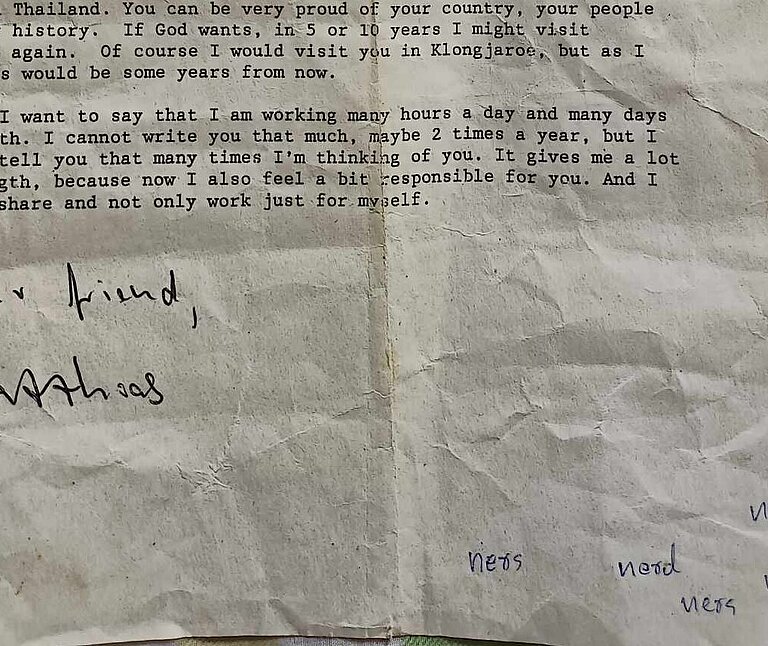 Thailand. You can be very proud of your country, your people
history. If God wants, in 5 or 10 years I might visit
again. Of course I would visit you in Klongjaroe, but as I
s would be some years from now.
I want to say that I am working many hours a day and many days
th. I cannot write you that much, maybe 2 times a year, but I
tell you that many times I'm thinking of you. It gives me a lot
gth, because now I also feel a bit responsible for you. And I
share and not only work just for myself.
r friend,
ners
nerd
ners